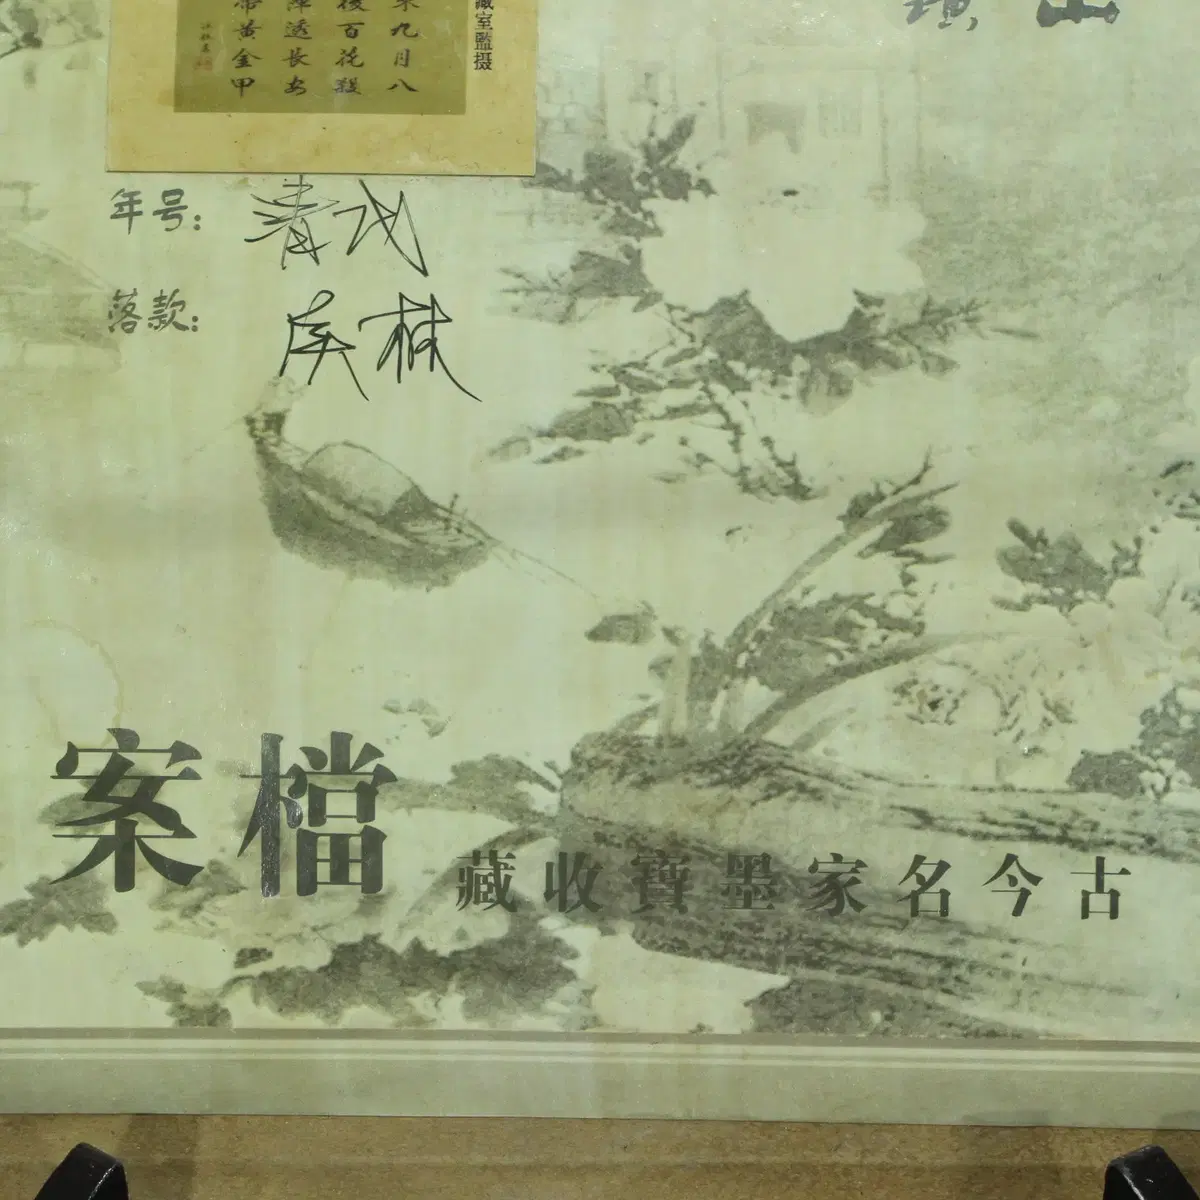 藏室監摄
來九月八
後百花殺
陣透長安
帶黃金甲
年号: 清代
落款:
古今名家墨寶收藏
檔案